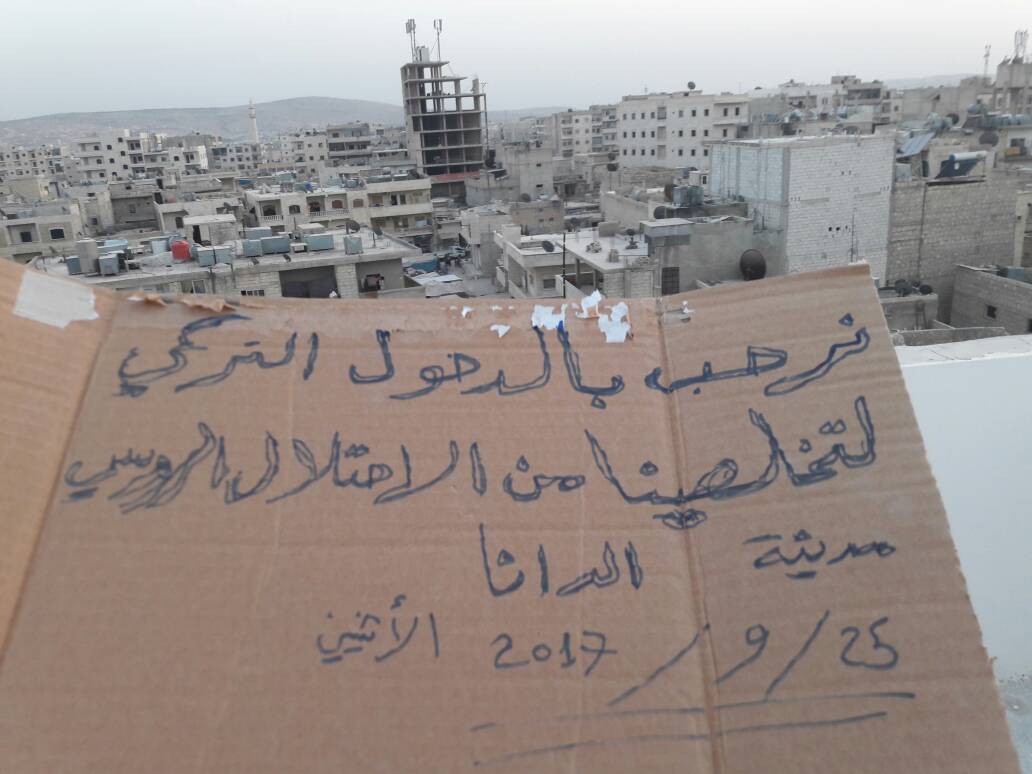 نرحب بالدخول التركي
لتخليصنا من الاحتلال الروسي
مدينة الدانا
25/9/2017 الأثنين